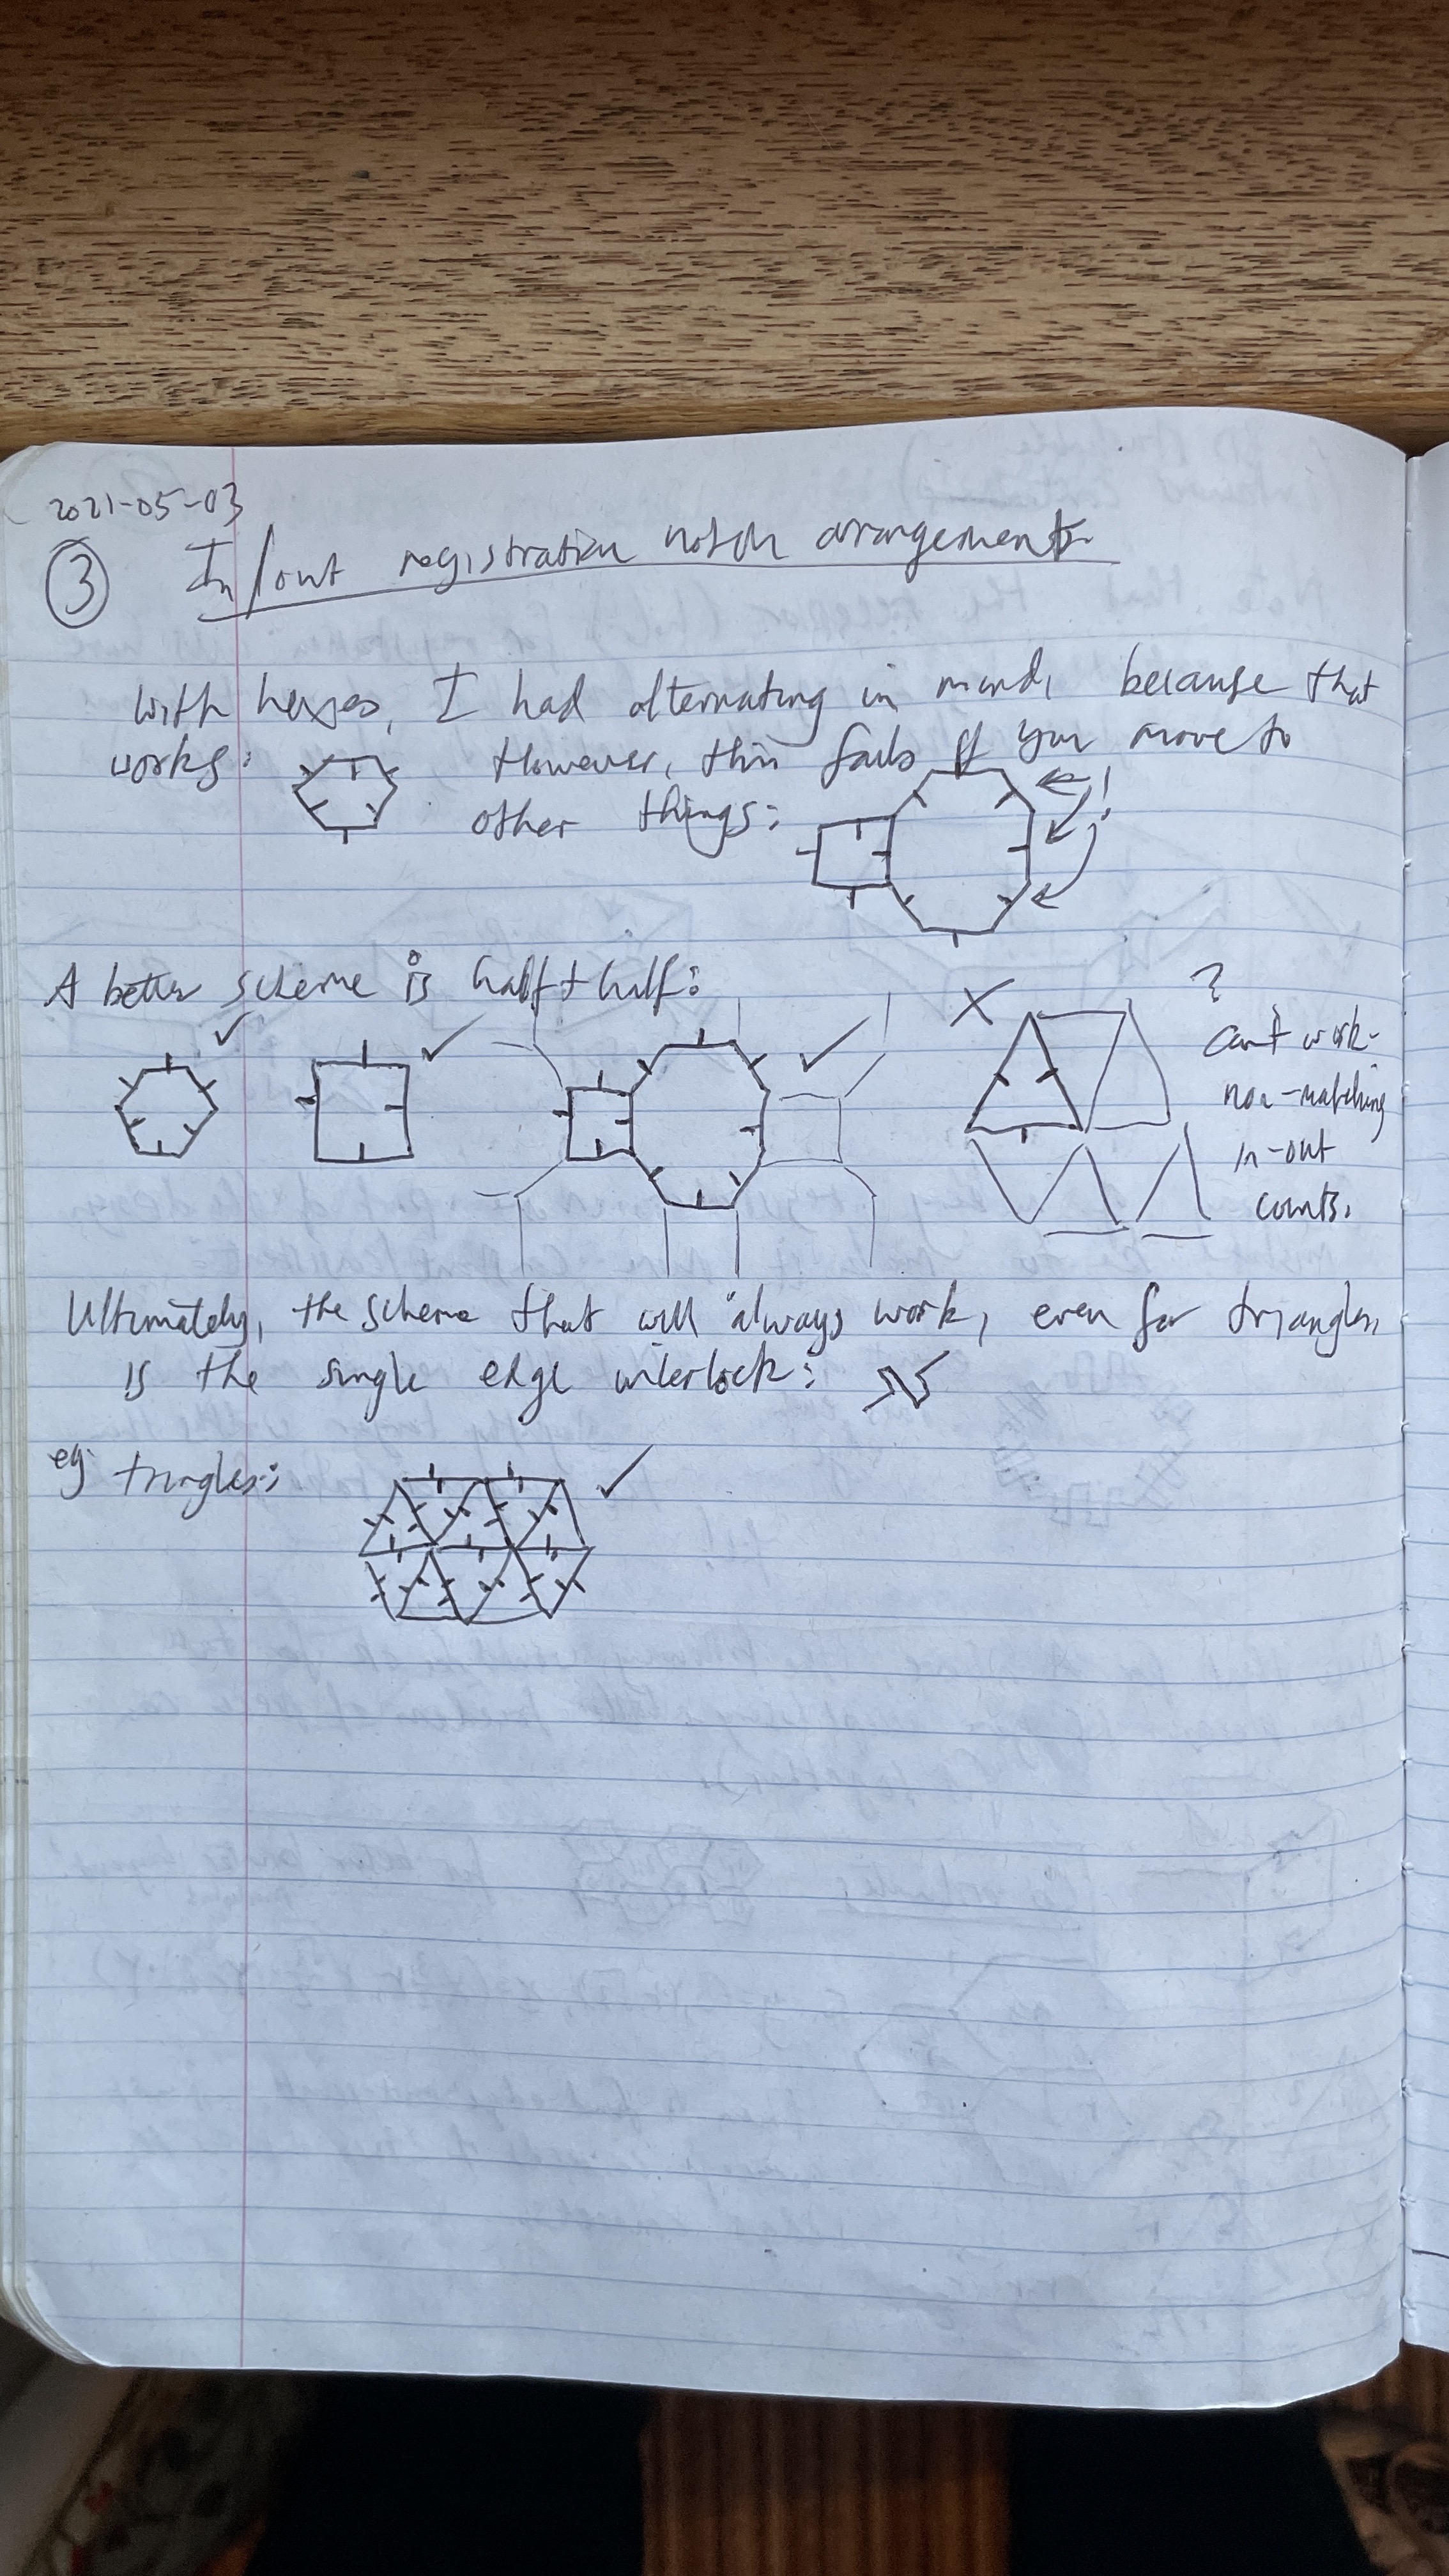 2021-05-03
③ In/out registration notch arrangements
With hexes, I had alternating in mind, because that
works: However, this fails if you move to
other things: !
A better scheme is half + half:
✓ ✓ ✓ X ?
can't work-
non-matching
in-out
counts.
Ultimately, the scheme that will always work, even for triangles,
is the single edge interlock:
eg triangles: ✓